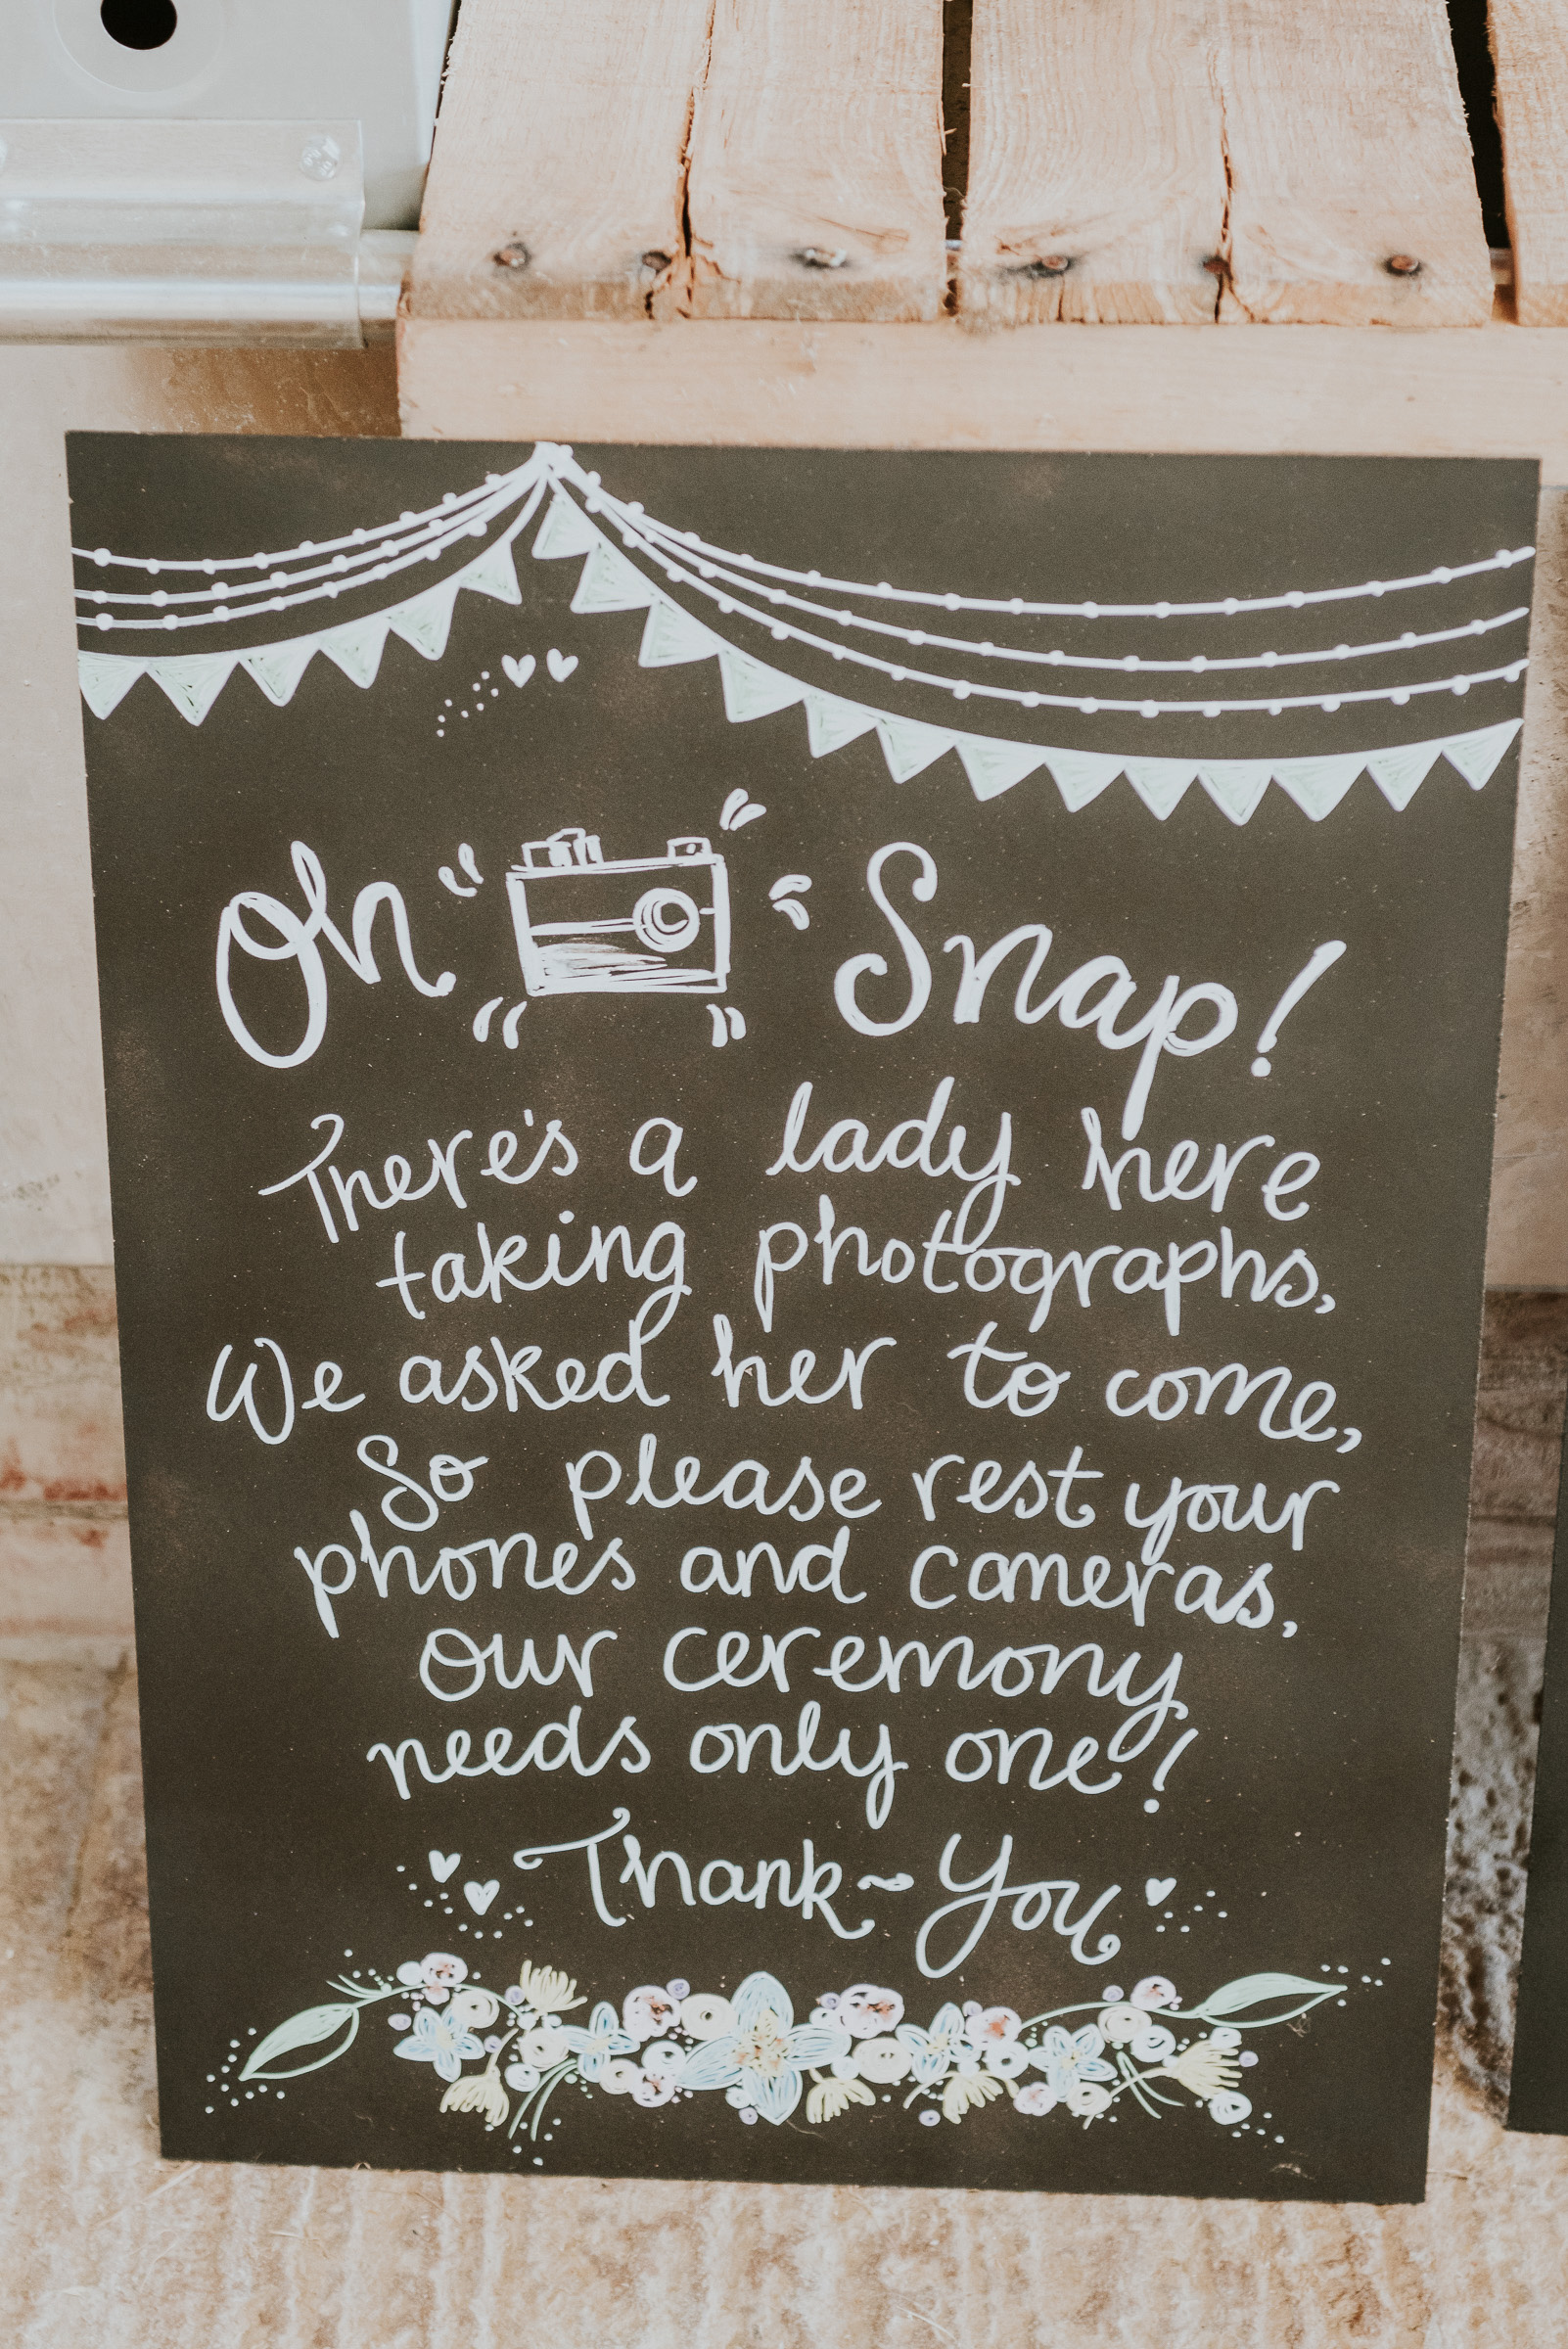 Oh Snap!
There's a lady here
taking photographs,
We asked her to come,
So please rest your
phones and cameras,
our ceremony
needs only one!
Thank~You